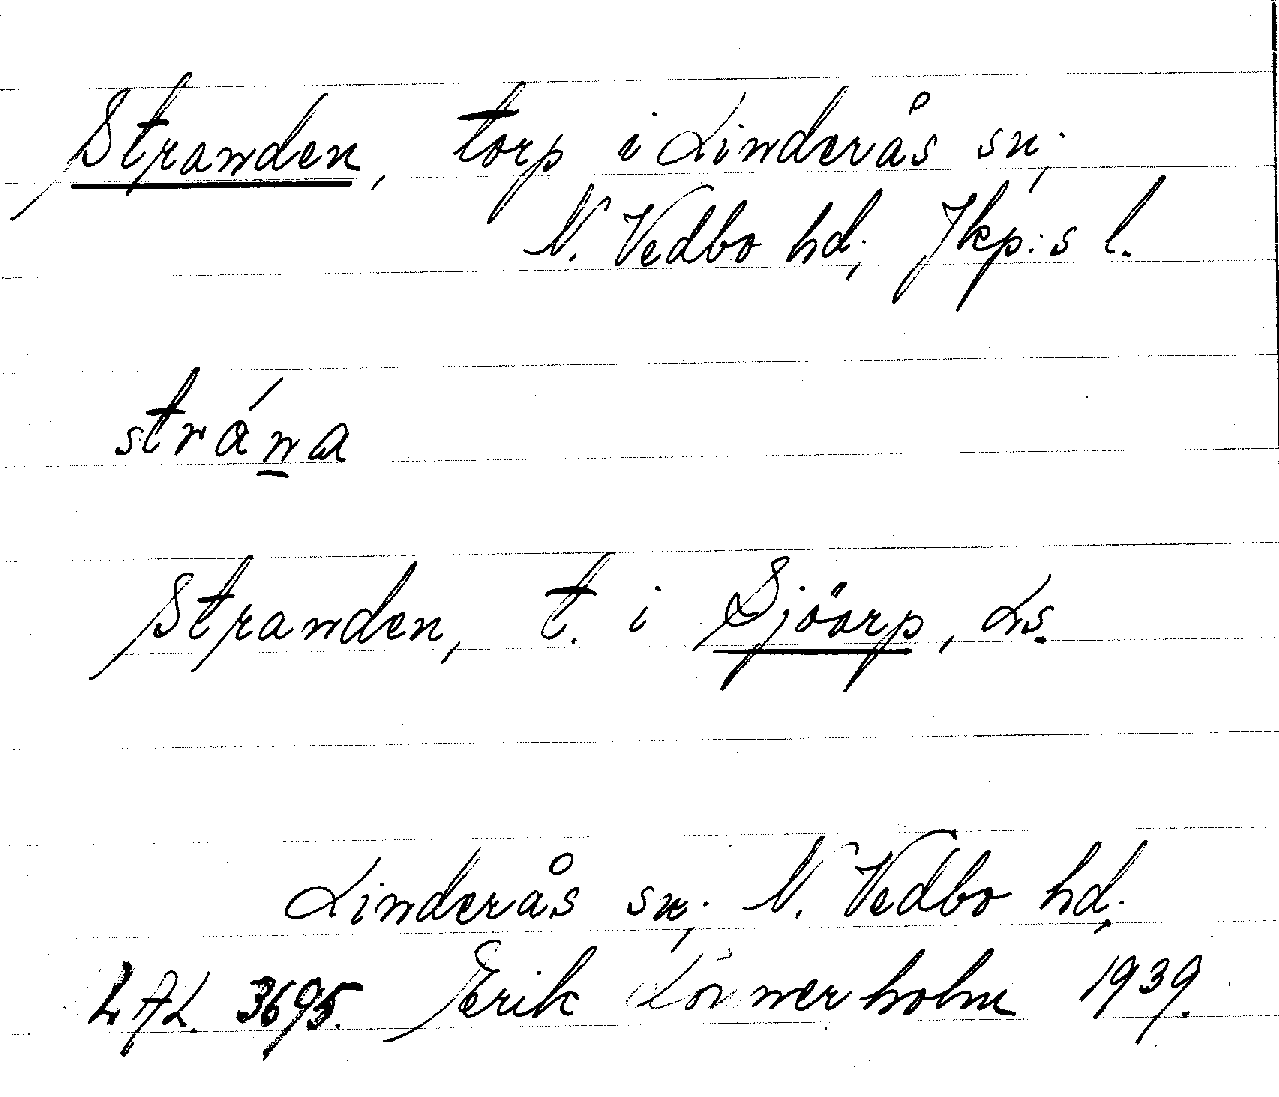 Stranden, torp i Linderås sn.,
N. Vedbo hd., Jkp:s l.
strána
Stranden, t. i Sjöarp, Ls.
Linderås sn., N. Vedbo hd.,
LAL. 3695. Erik Lönnerholm 1939.